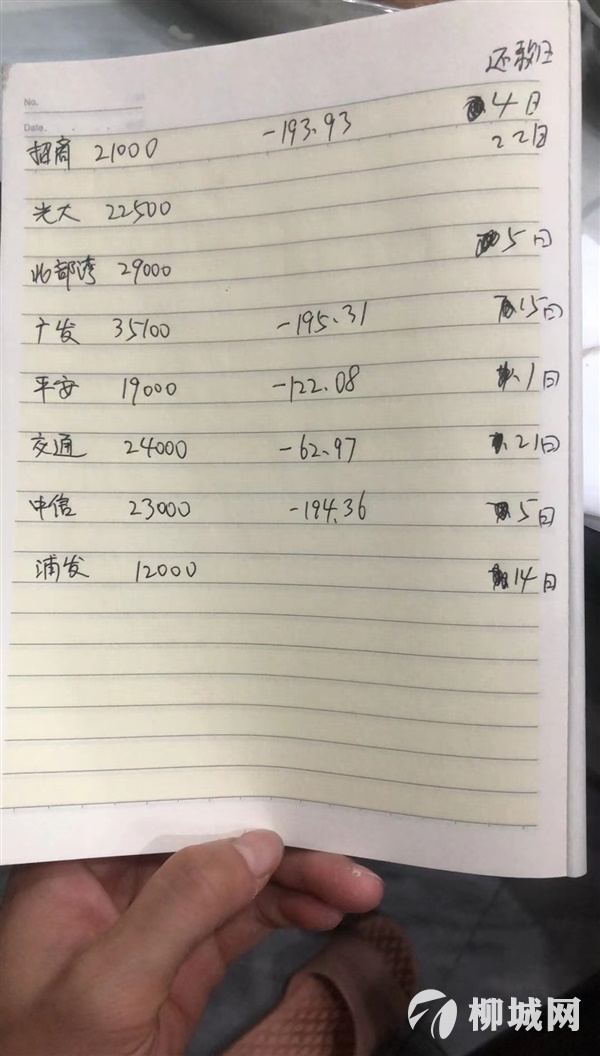 No.
Date.
还款日
招商 21000 -193.93 4日
22日
光大 22500
北部湾 29000 5日
广发 35100 -195.31 15日
平安 19000 -122.08 1日
交通 24000 -62.97 21日
中信 23000 -194.36 5日
浦发 12000 14日
柳城网